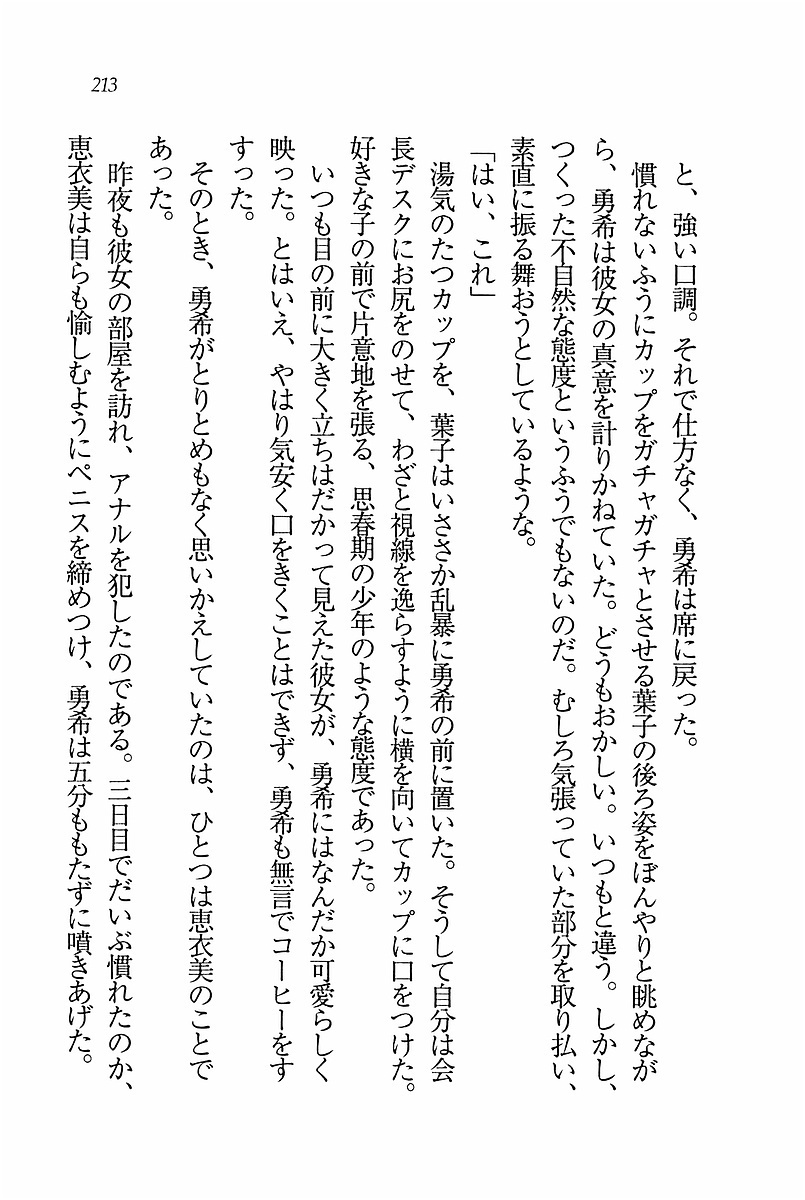 213
と、強い口調。それで仕方なく、勇希は席に戻った。
慣れないふうにカップをガチャガチャとさせる葉子の後ろ姿をぼんやりと眺めなが
ら、勇希は彼女の真意を計りかねていた。どうもおかしい。いつもと違う。しかし、
つくった不自然な態度というふうでもないのだ。むしろ気張っていた部分を取り払い、
素直に振る舞おうとしているような。
「はい、これ」
湯気のたつカップを、葉子はいささか乱暴に勇希の前に置いた。そうして自分は会
長デスクにお尻をのせて、わざと視線を逸らすように横を向いてカップに口をつけた。
好きな子の前で片意地を張る、思春期の少年のような態度であった。
いつも目の前に大きく立ちはだかって見えた彼女が、勇希にはなんだか可愛らしく
映った。とはいえ、やはり気安く口をきくことはできず、勇希も無言でコーヒーをす
すった。
そのとき、勇希がとりとめもなく思いかえしていたのは、ひとつは恵衣美のことで
あった。
昨夜も彼女の部屋を訪れ、アナルを犯したのである。三日目でだいぶ慣れたのか、
恵衣美は自らも愉しむようにペニスを締めつけ、勇希は五分ももたずに噴きあげた。